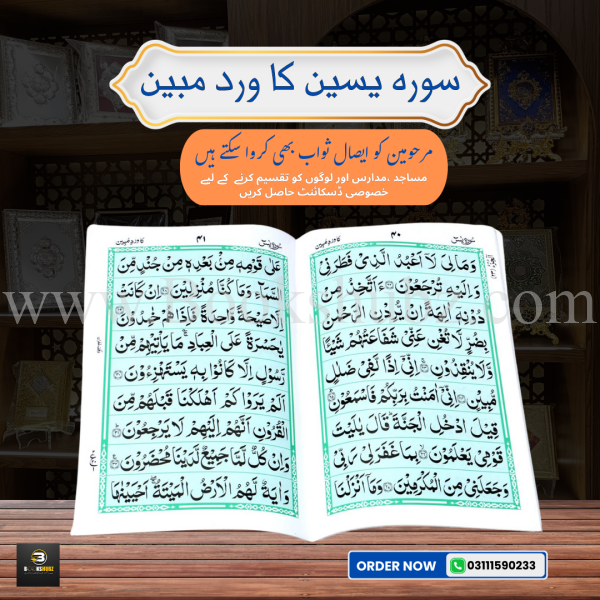 سورہ یسین کا ورد مبین
مرحومین کو ایصال ثواب بھی کروا سکتے ہیں
مساجد ،مدارس اور لوگوں کو تقسیم کرنے کے لیے
خصوصی ڈسکائنٹ حاصل کریں
۴۰
وَمَا لِیَ لَاۤ اَعْبُدُ الَّذِیْ فَطَرَنِیْ
وَ اِلَیْهِ تُرْجَعُوْنَ ءَاَتَّخِذُ مِنْ
دُوْنِهٖۤ اٰلِهَةً اِنْ یُّرِدْنِ الرَّحْمٰنُ
بِضُرٍّ لَّا تُغْنِ عَنِّیْ شَفَاعَتُهُمْ شَیْـًٔا
وَّلَا یُنْقِذُوْنِ اِنِّیْۤ اِذًا لَّفِیْ ضَلٰلٍ
مُّبِیْنٍ اِنِّیْۤ اٰمَنْتُ بِرَبِّكُمْ فَاسْمَعُوْنِ
قِیْلَ ادْخُلِ الْجَنَّةَ قَالَ یٰلَیْتَ
قَوْمِیْ یَعْلَمُوْنَ بِمَا غَفَرَ لِیْ رَبِّیْ
وَجَعَلَنِیْ مِنَ الْمُكْرَمِیْنَ وَمَاۤ اَنْزَلْنَا
۴۱
عَلٰی قَوْمِهٖ مِنْۢ بَعْدِهٖ مِنْ جُنْدٍ مِّنَ
السَّمَآءِ وَمَا كُنَّا مُنْزِلِیْنَ اِنْ كَانَتْ
اِلَّا صَیْحَةً وَّاحِدَةً فَاِذَا هُمْ خٰمِدُوْنَ
یٰحَسْرَةً عَلَی الْعِبَادِ مَا یَاْتِیْهِمْ مِّنْ
رَّسُوْلٍ اِلَّا كَانُوْا بِهٖ یَسْتَهْزِءُوْنَ
اَلَمْ یَرَوْا كَمْ اَهْلَكْنَا قَبْلَهُمْ مِّنَ
الْقُرُوْنِ اَنَّهُمْ اِلَیْهِمْ لَا یَرْجِعُوْنَ
وَاِنْ كُلٌّ لَّمَّا جَمِیْعٌ لَّدَیْنَا مُحْضَرُوْنَ
وَاٰیَةٌ لَّهُمُ الْاَرْضُ الْمَیْتَةُ اَحْیَیْنٰهَا
www.bookshubz.com
BOOKSHUBZ
ORDER NOW 03111590233